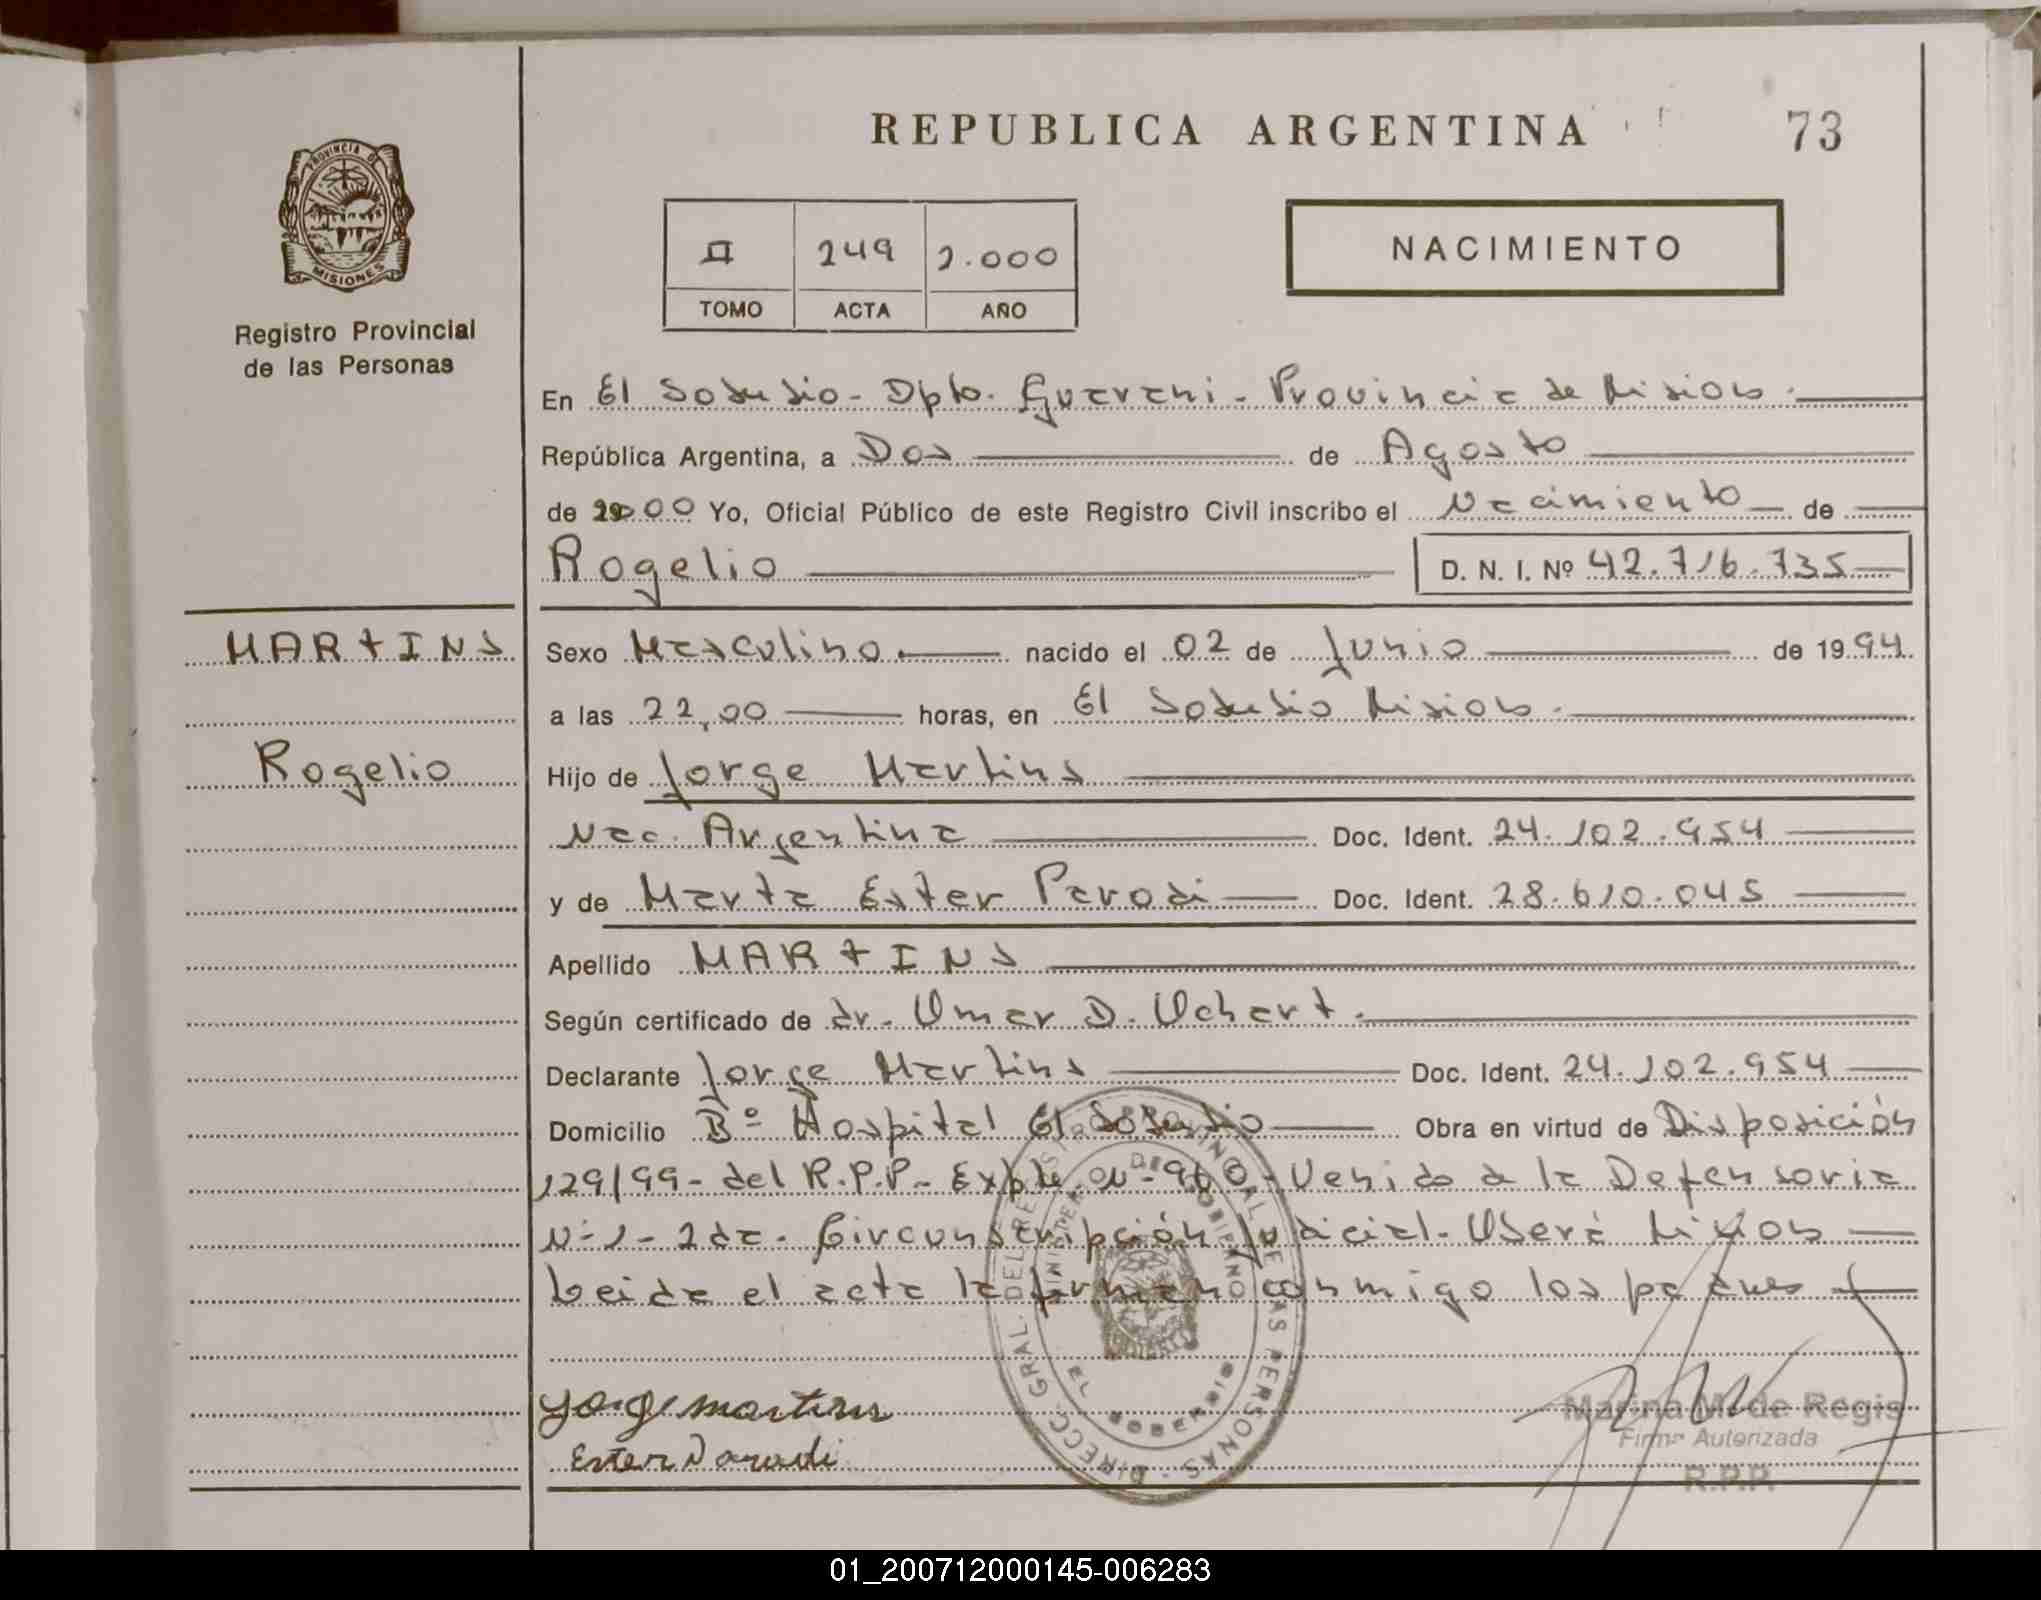 REPUBLICA ARGENTINA
73
PROVINCIA D
MISIONES
Registro Provincial
de las Personas
II 249 2.000
TOMO ACTA AÑO
NACIMIENTO
En El Soberbio - Dpto. Guarani - Provincia de Misiones.
República Argentina, a Dos de Agosto
de 2000 Yo, Oficial Público de este Registro Civil inscribo el Nacimiento de
Rogelio D. N. I. Nº 42.716.735
MARTINS
Sexo Masculino nacido el 02 de Junio de 1994
a las 22,00 horas, en El Soberbio Misiones.
Rogelio
Hijo de Jorge Martins
Nac. Argentina Doc. Ident. 24.102.954
y de Marta Ester Parodi Doc. Ident. 28.610.045
Apellido MARTINS
Según certificado de dr. Omar D.
Declarante Jorge Martins Doc. Ident. 24.102.954
Domicilio Bº Hospital El Soberbio Obra en virtud de Disposición
129/99 - del R.P.P. - Expte. Nº 960 - Venido a la Defensoria
Nº 1 - 2da. Circunscripción Judicial - Oberá Misiones
Leida el acta la firman conmigo los padres
Jorge martins
Ester Parodi
DIRECC. GRAL. DEL REGISTRO PROVINCIAL DE LAS PERSONAS
EL SOBERBIO
Marina M. de Regis
Firma Autorizada
R.P.P.
01_200712000145-006283